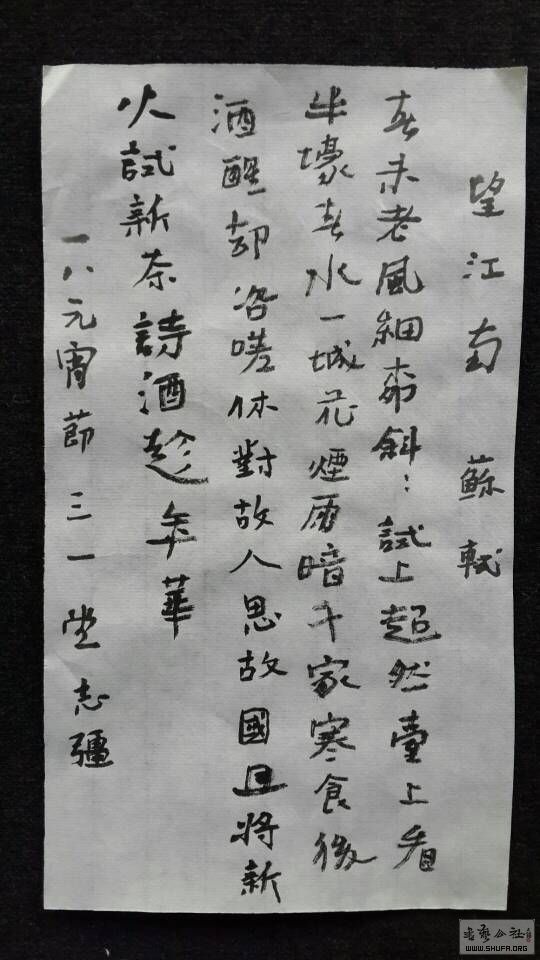 望江南 蘇軾
春未老風細柳斜:試上超然臺上看
半壕春水一城花煙雨暗千家寒食後
酒醒却咨嗟休對故人思故國且將新
火試新茶詩酒趁年華
一八元宵節三一堂志疆
WWW.SHUFA.ORG